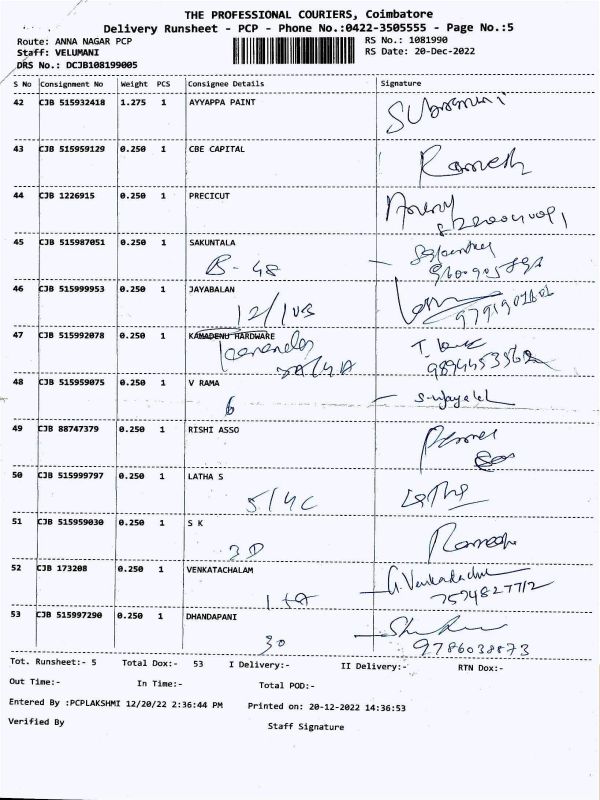 THE PROFESSIONAL COURIERS, Coimbatore
Delivery Runsheet - PCP - Phone No.:0422-3505555 - Page No.:5
Route: ANNA NAGAR PCP RS No.: 1081990
Staff: VELUMANI RS Date: 20-Dec-2022
DRS No.: DCJB108199005
S No Consignment No Weight PCS Consignee Details Signature
42 CJB 515932418 1.275 1 AYYAPPA PAINT
43 CJB 515959129 0.250 1 CBE CAPITAL Ramesh
44 CJB 1226915 0.250 1 PRECICUT
45 CJB 515987051 0.250 1 SAKUNTALA
B-48
46 CJB 515999953 0.250 1 JAYABALAN
12/103
47 CJB 515992078 0.250 1 KAMADENU HARDWARE
48 CJB 515959075 0.250 1 V RAMA
6
49 CJB 88747379 0.250 1 RISHI ASSO
50 CJB 515999797 0.250 1 LATHA S
5/4C Latha
51 CJB 515959030 0.250 1 S K
3D Ramesh
52 CJB 173208 0.250 1 VENKATACHALAM
53 CJB 515997290 0.250 1 DHANDAPANI
30 9786038873
Tot. Runsheet:- 5 Total Dox:- 53 I Delivery:- II Delivery:- RTN Dox:-
Out Time:- In Time:- Total POD:-
Entered By :PCPLAKSHMI 12/20/22 2:36:44 PM Printed on: 20-12-2022 14:36:53
Verified By Staff Signature